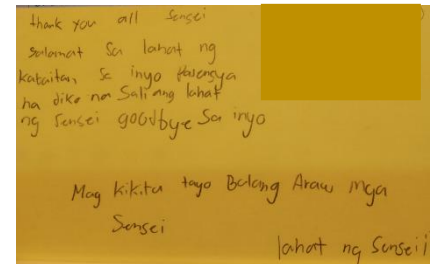 thank you all Sensei
salamat sa lahat ng
kabaitan sa inyo Pasensya
na diko na Sali ang lahat
ng Sensei goodbye sa inyo
Mag kikita tayo Balang Araw mga
Sensei
lahat ng Senseii